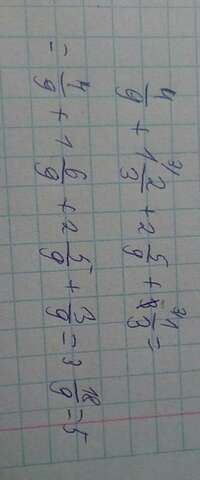 4/9 + 1 2/3 + 2 5/9 + 1/3 =
= 4/9 + 1 6/9 + 2 5/9 + 3/9 = 3 18/9 = 5